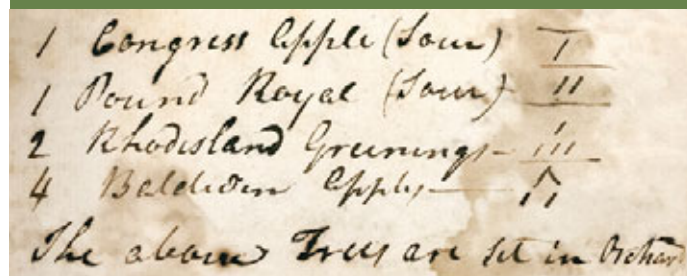 1 Congress Apple (Sour) I
1 Pound Royal (Sour) II
2 Rhodisland Greenings III
4 Baldwin Apples
The above Trees are set in Orchard